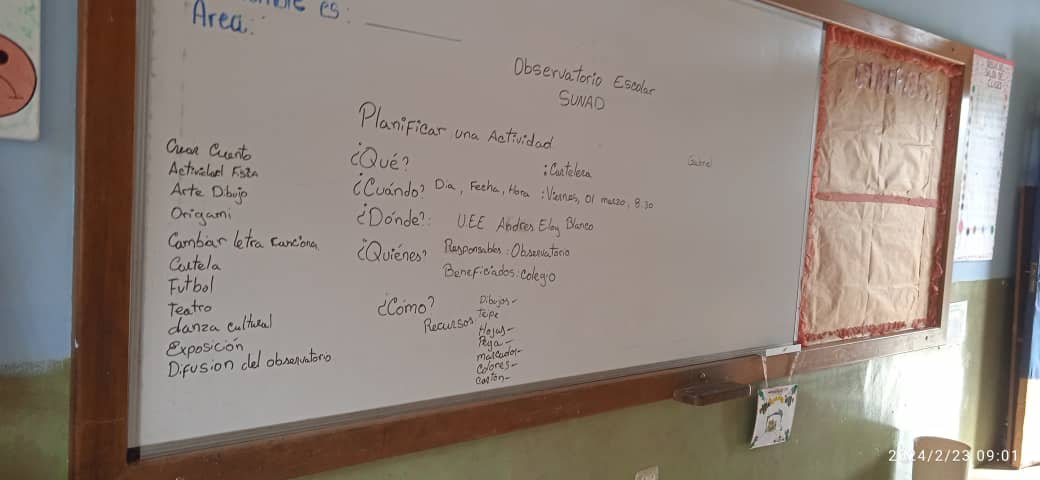 es:
Area:
Observatorio Escolar
SUNAD
Planificar una Actividad
Crear Cuento
Actividad Física
Arte Dibujo
Origami
Cambiar letra canciona
Cartela
Futbol
Teatro
danza cultural
Exposición
Difusion del observatorio
¿Qué? : Cartelera
¿Cuándo? Dia, Fecha, Hora : Viernes, 01 marzo, 8:30
¿Dónde?: UEE Andres Eloy Blanco
¿Quiénes? Responsables: Observatorio
Beneficiados: Colegio
¿Cómo?
Recursos
Dibujos-
Tepe
Hojas-
Pega-
marcador-
Colores-
Carton-
Gabriel
2024/2/23 09:01